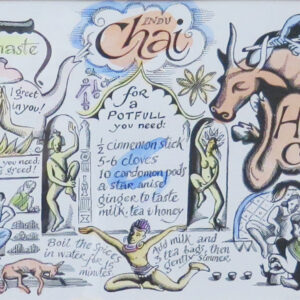 namaste
I greet
in you!
you need.
greed!
INDU
Chai
for a
POTFULL
you need:
½ cinnemon stick
5-6 cloves
10 cardomon pods
a star anise
ginger to taste
milk, tea & honey
Boil the spices
in water for 15
minutes
Add milk and
3 tea bags, then
gently simmer
H